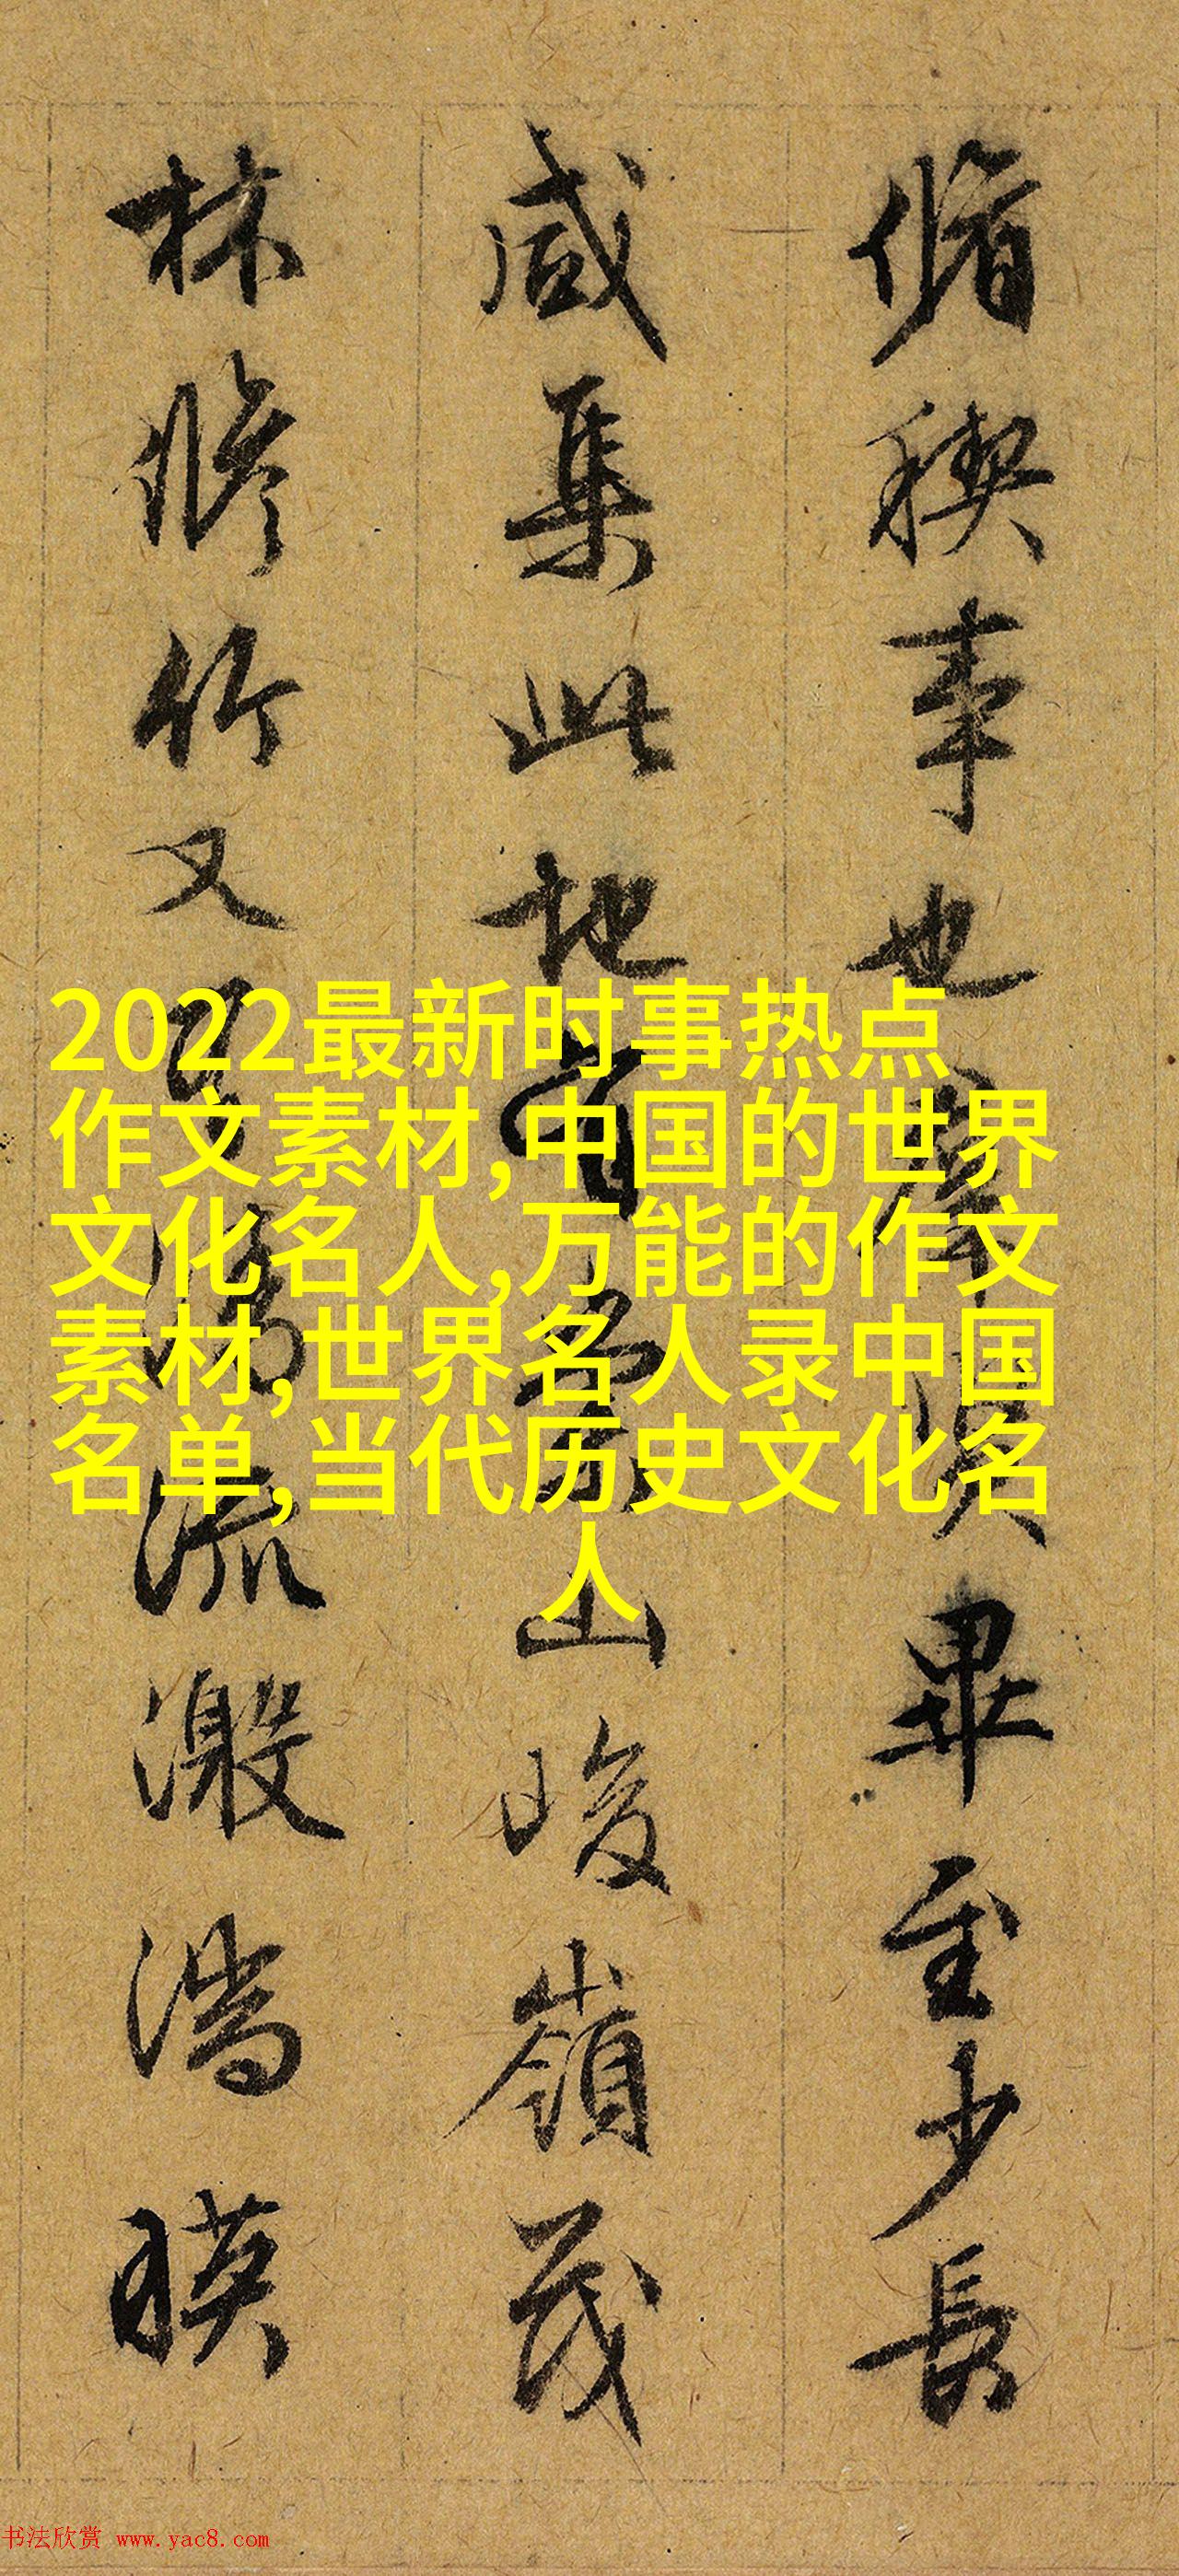 脩稧事也羣賢畢至少長
咸集此地有崇山峻嶺茂
林脩竹又有清流激湍暎
2022最新时事热点
作文素材,中国的世界
文化名人,万能的作文
素材,世界名人录中国
名单,当代历史文化名
人
书法欣赏 www.yac8.com